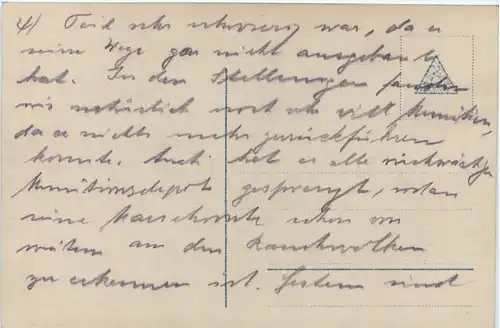 4) Teil sehr schwierig war, da er
seine Wege gar nicht ausgebaut
hat. In den Stellungen fanden
wir natürlich noch sehr viel Munition,
da er nichts mehr zurückführen
konnte. Auch hat er alle rückwärtigen
Munitionsdepots gesprengt, sodass
seine schon von
weitem an den Rauchwolken
zu erkennen ist. Gestern sind